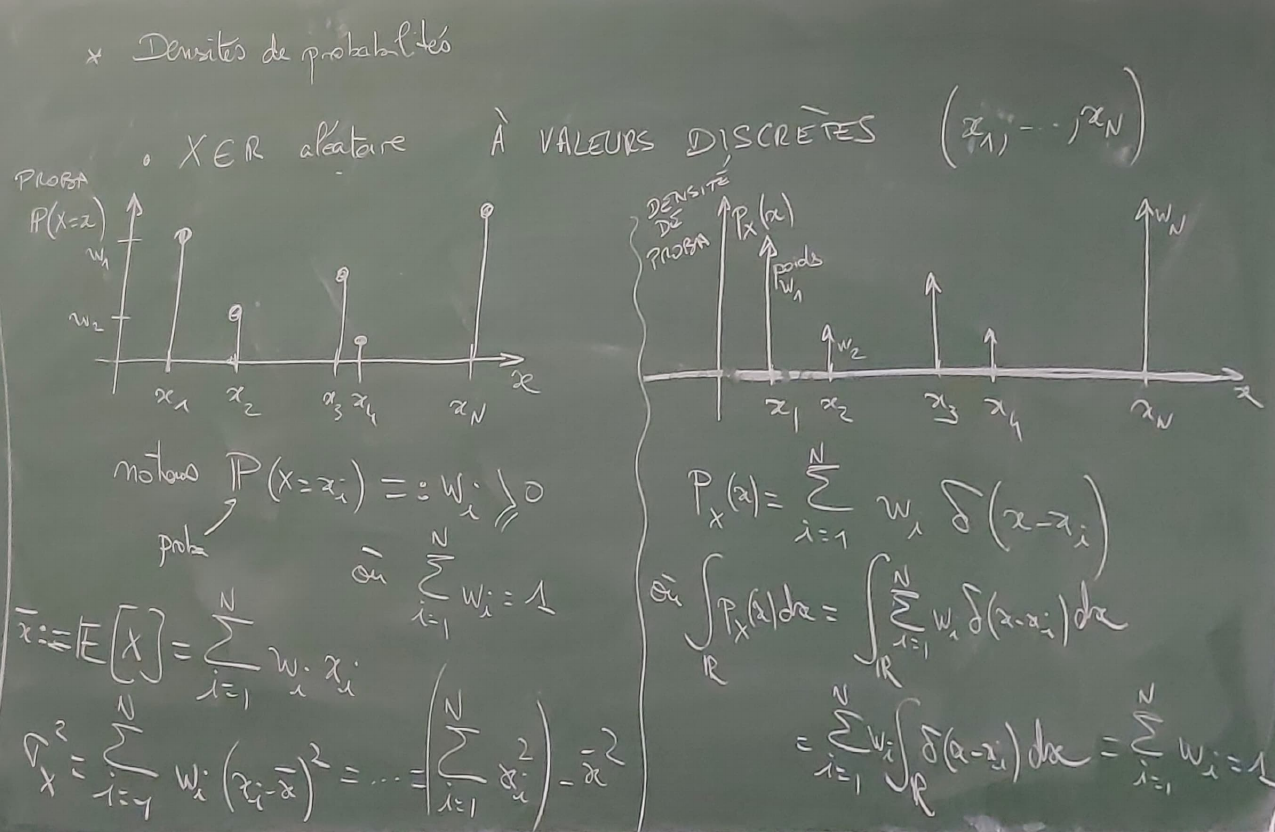 * Densités de probabilités
• X∈R aléatoire À VALEURS DISCRÈTES (x₁, ..., x_N)
PROBA
P(X=x)
w₁
w₂
x₁ x₂ x₃ x₄ x_N x
notons P(X=x_i) =: w_i ⩾ 0
proba
où ∑_{i=1}^{N} w_i = 1
x̄ := E[X] = ∑_{i=1}^{N} w_i x_i
σ_X² = ∑_{i=1}^{N} w_i (x_i - x̄)² = ... = (∑_{i=1}^{N} x_i²) - x̄²
DENSITÉ
DE
PROBA
p_X(x)
poids
w₁
w₂
w_N
x₁ x₂ x₃ x₄ x_N x
P_X(x) = ∑_{i=1}^{N} w_i δ(x-x_i)
où ∫_R P_X(x)dx = ∫_R ∑_{i=1}^{N} w_i δ(x-x_i)dx
= ∑_{i=1}^{N} w_i ∫_R δ(x-x_i)dx = ∑_{i=1}^{N} w_i = 1